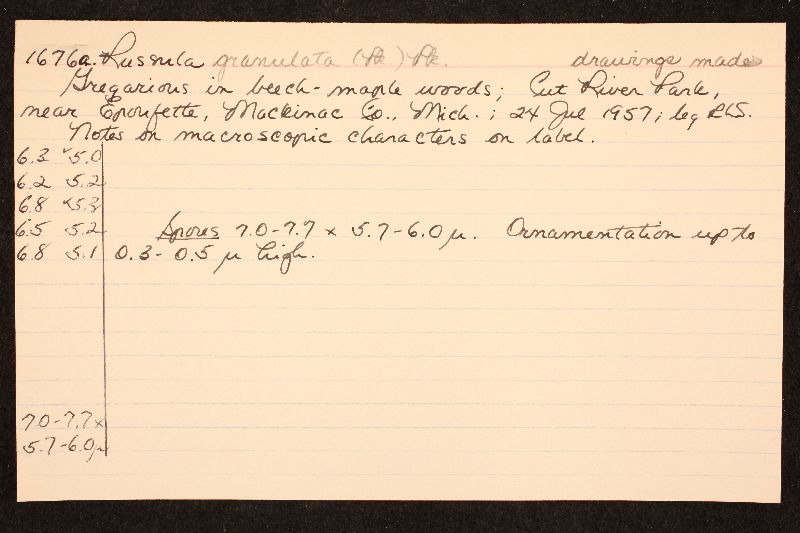 1676a. Russula granulata (Pk) Pk. drawings made
Gregarious in beech-maple woods; Cut River Park,
near Epoufette, Mackinac Co., Mich.; 24 Jul 1957; leg RLS.
Notes on macroscopic characters on label.
6.3 5.0
6.2 5.2
6.8 5.3
6.5 5.2 Spores 7.0-7.7 x 5.7-6.0 µ. Ornamentation up to
6.8 5.1 0.3-0.5 µ high.
7.0-7.7 x
5.7-6.0 µ